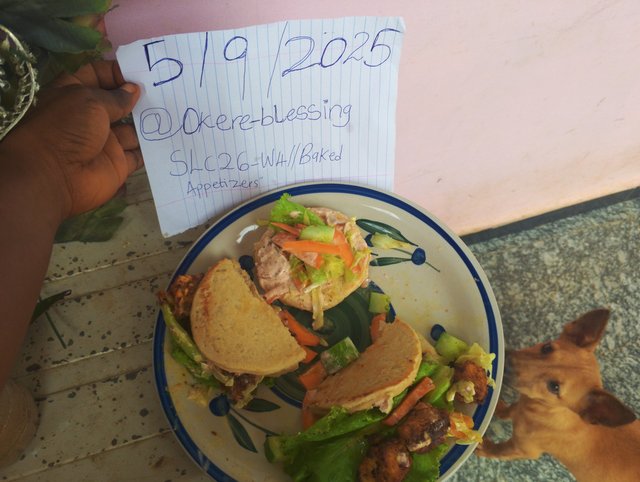 5/9/2025
@Okere-blessing
SLC26-W4//Baked
Appetizers